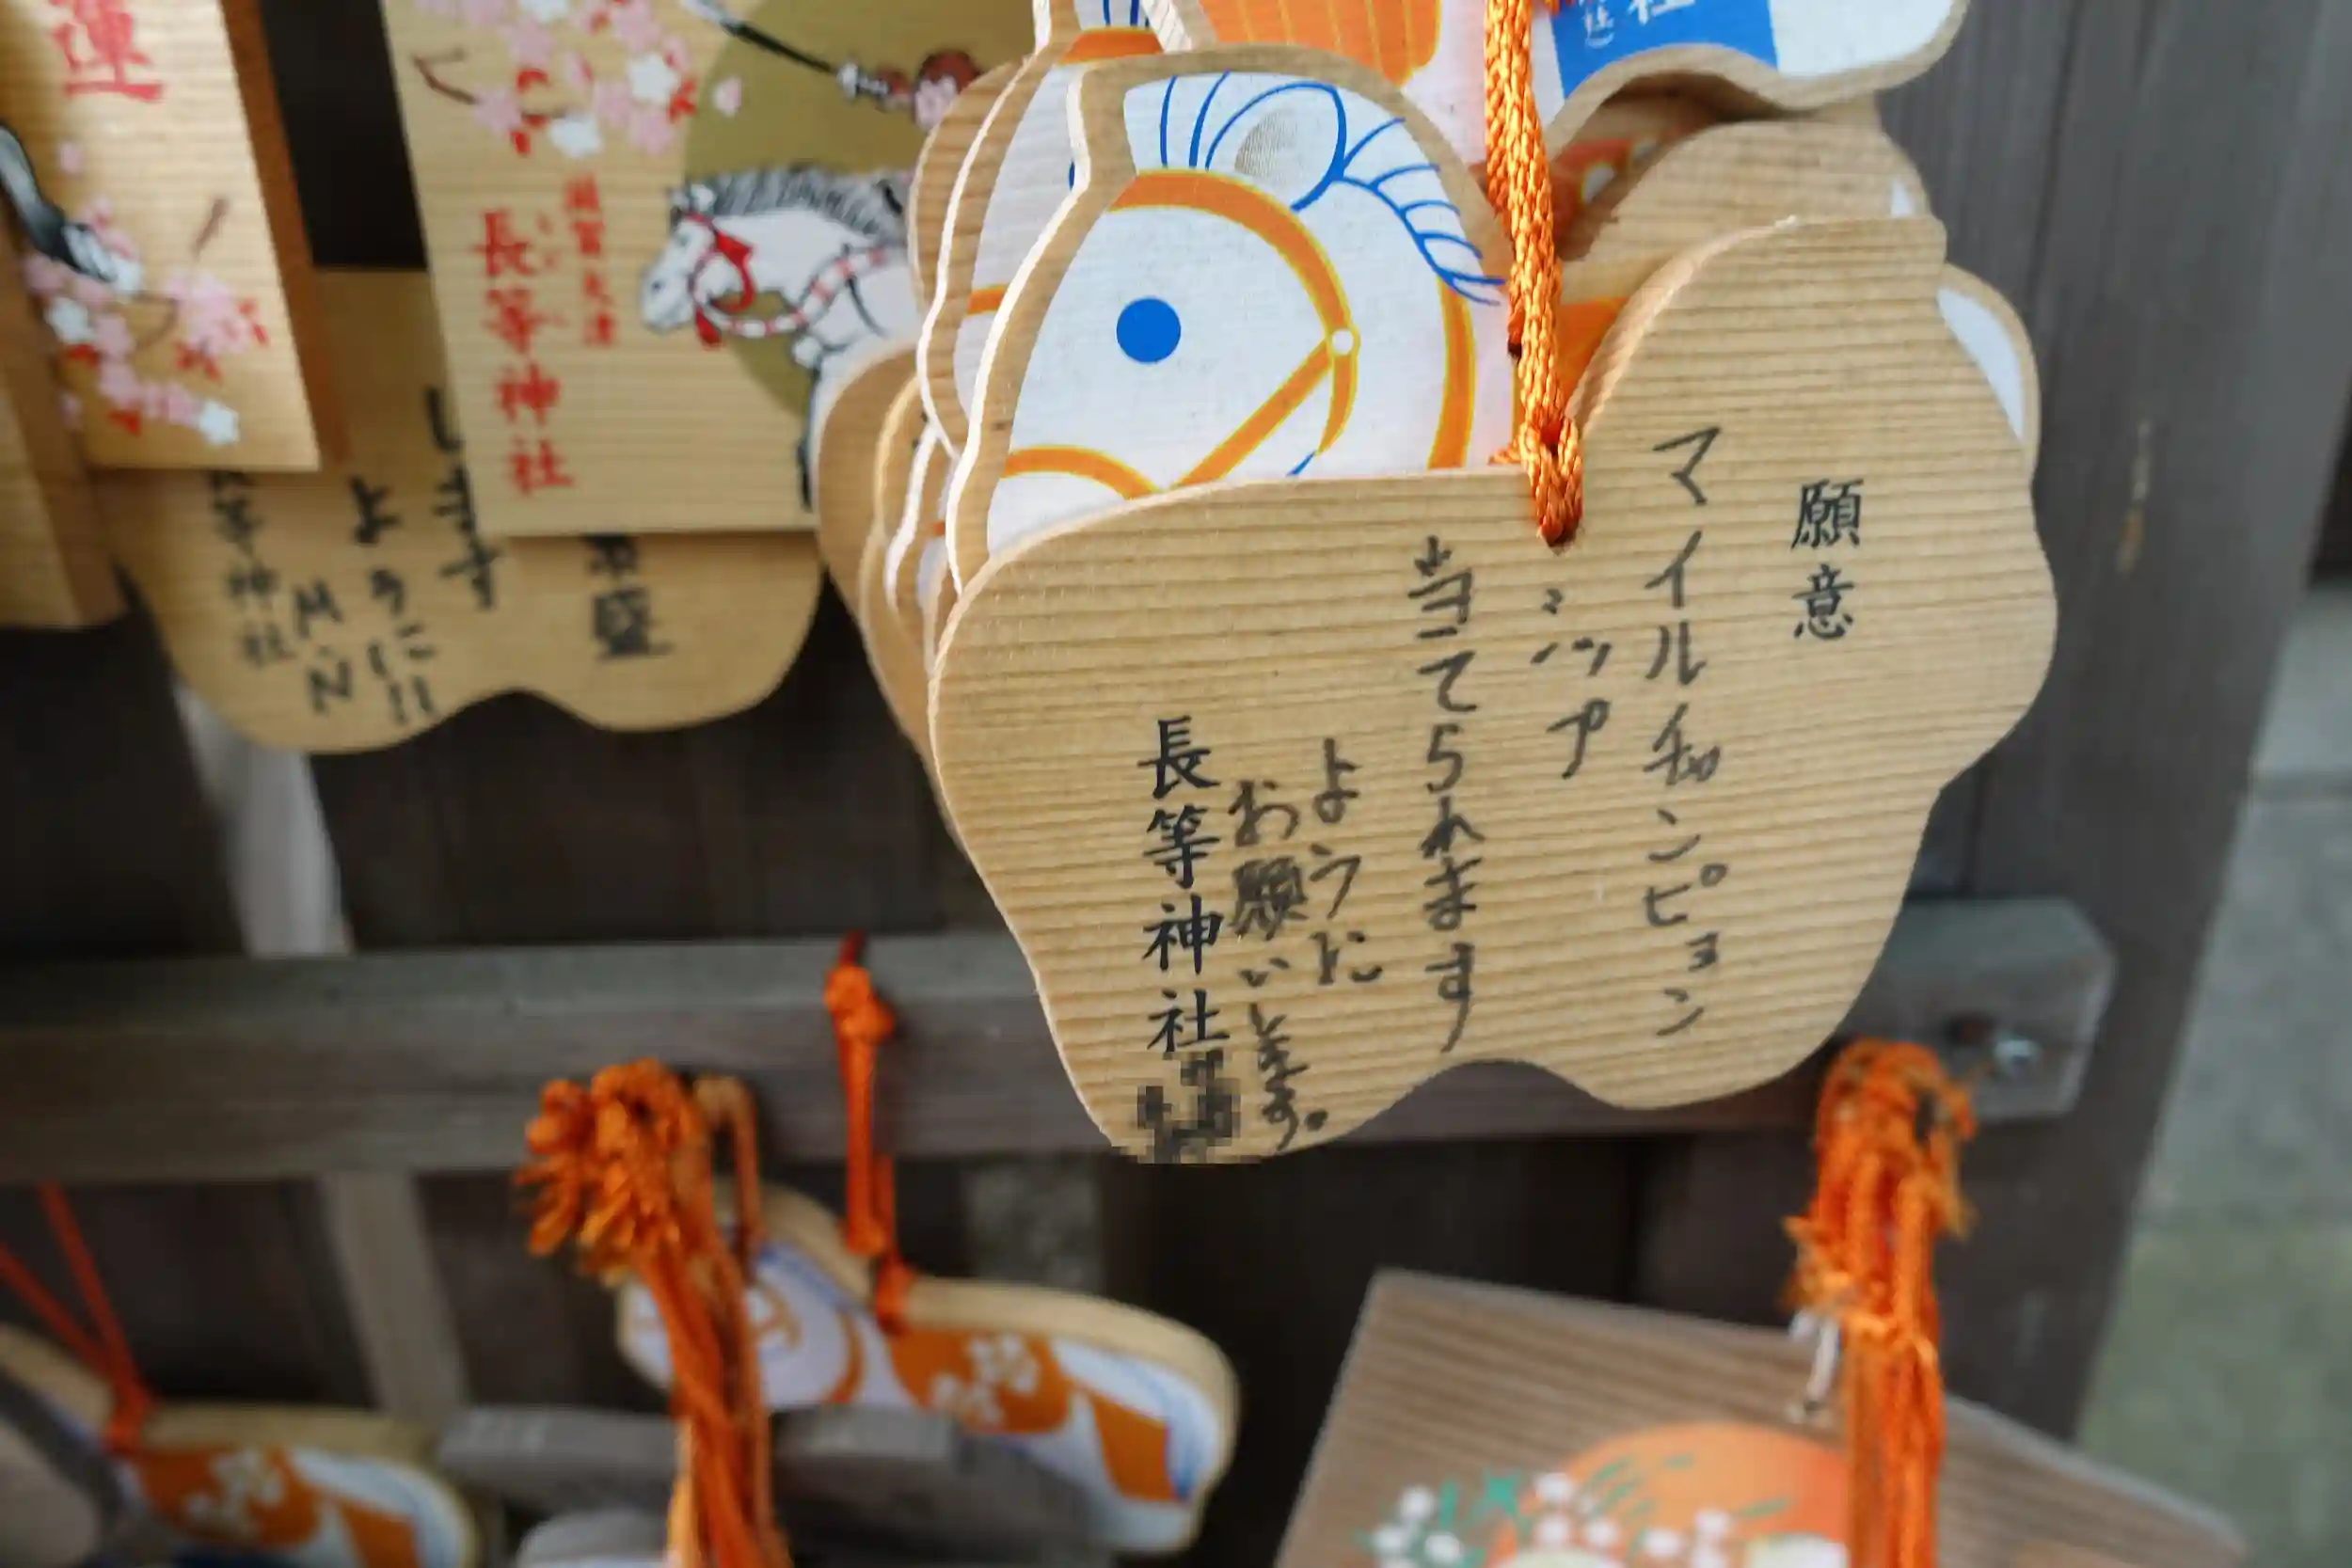 願意
マイルチャンピョン
シップ
当てられます
ように
お願いします。
長等神社
長等神社
運
します
ように!!
M.N
神社
盛